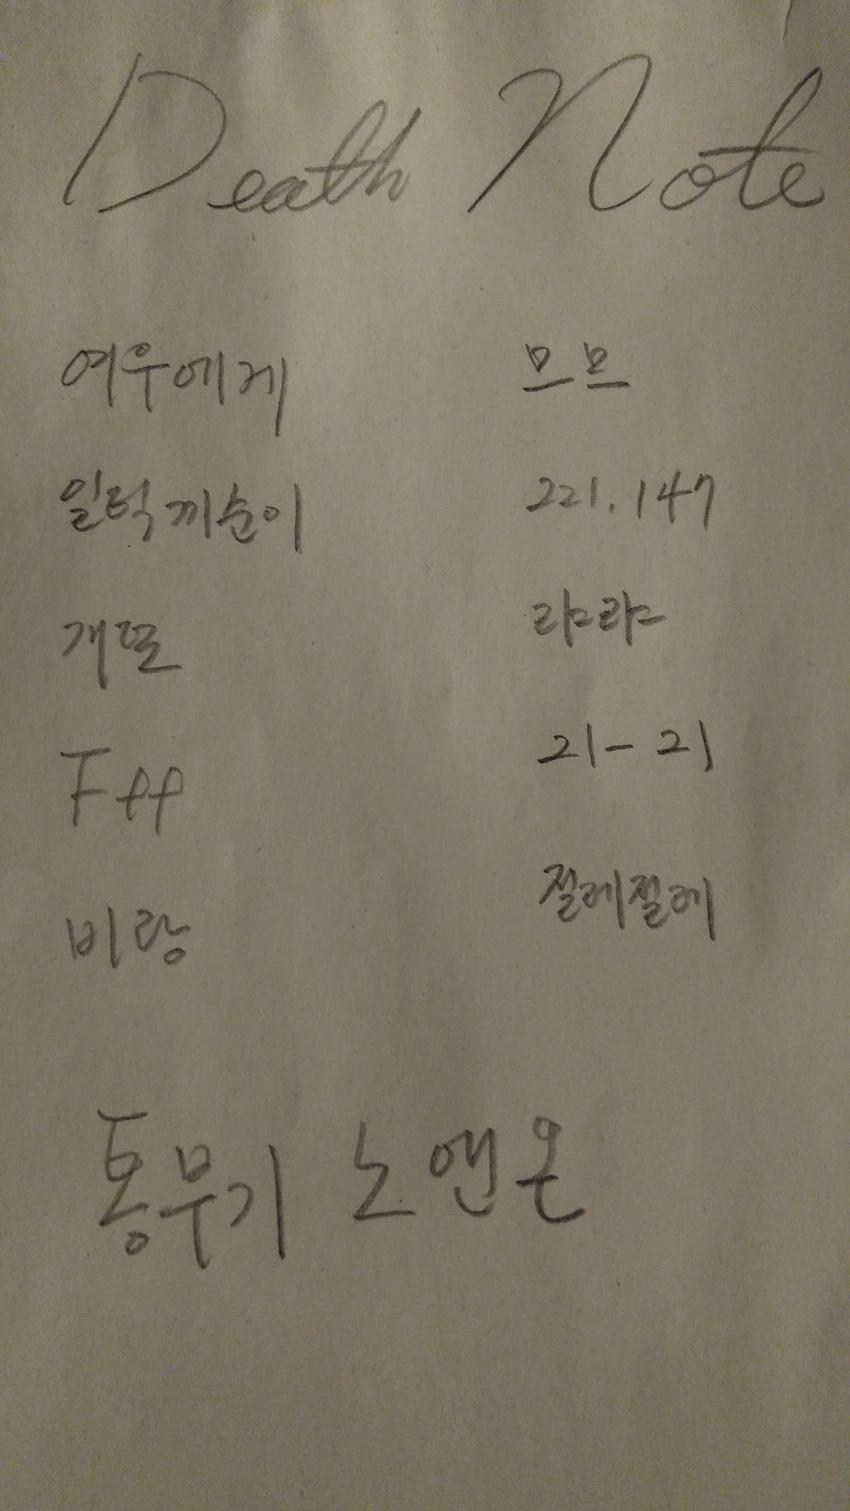 Death Note
여우에게
일턱끼순이
개똘
Fff
비랑
므므
221.147
랴랴
21-21
절레절레
통무기 노앤온